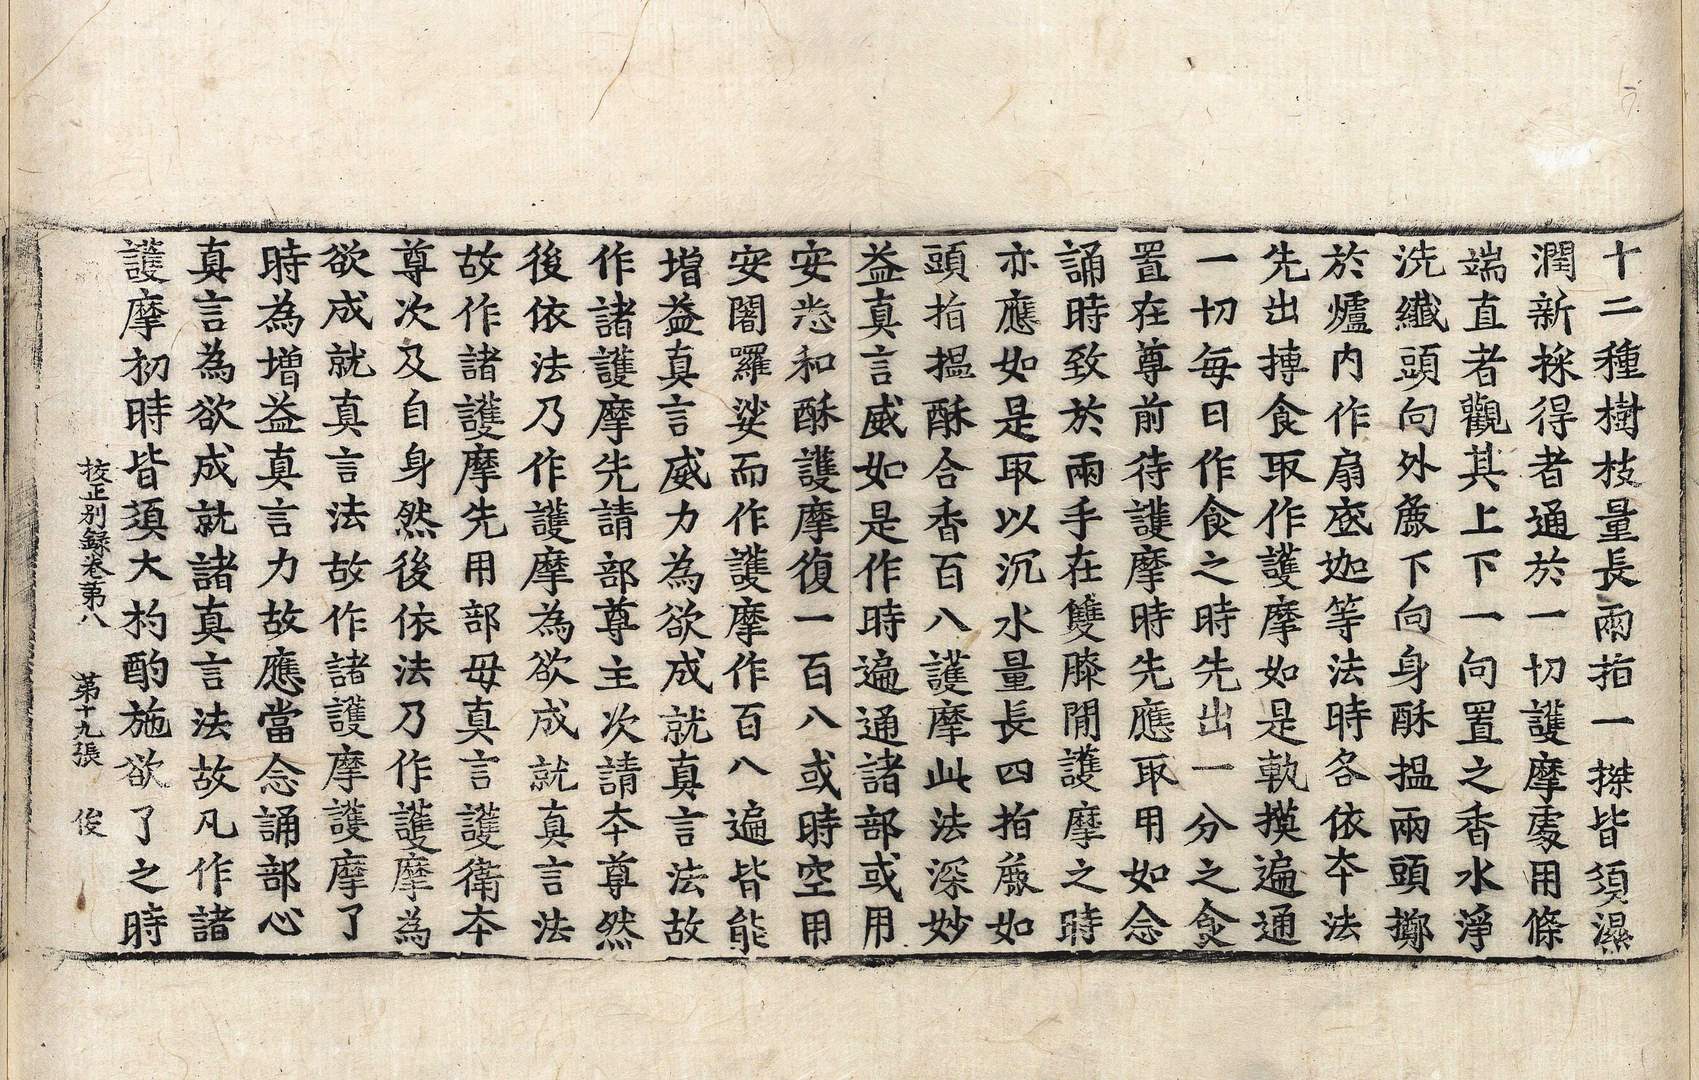 十二種樹枝量長兩指一搩皆須濕
潤新採得者通於一切護摩處用條
端直者觀其上下一向置之香水淨
洗纖頭向外麁下向身酥揾兩頭擲
於爐內作扇底迦等法時各依本法
先出摶食取作護摩如是軌摸遍通
一切每日作食之時先出一分之食
置在尊前待護摩時先應取用如念
誦時致於兩手在雙膝間護摩之時
亦應如是取以沉水量長四指麁如
頭指揾酥合香百八護摩此法深妙
益真言威如是作時遍通諸部或用
安悉和酥護摩復一百八或時空用
安闍囉娑而作護摩作百八遍皆能
增益真言威力為欲成就真言法故
作諸護摩先請部尊主次請本尊然
後依法乃作護摩為欲成就真言法
故作諸護摩先用部母真言護衛本
尊次及自身然後依法乃作護摩為
欲成就真言法故作諸護摩護摩了
時為增益真言力故應當念誦部心
真言為欲成就諸真言法故凡作諸
護摩初時皆須大杓酌施欲了之時
校正別錄卷第八　第十九張　俊